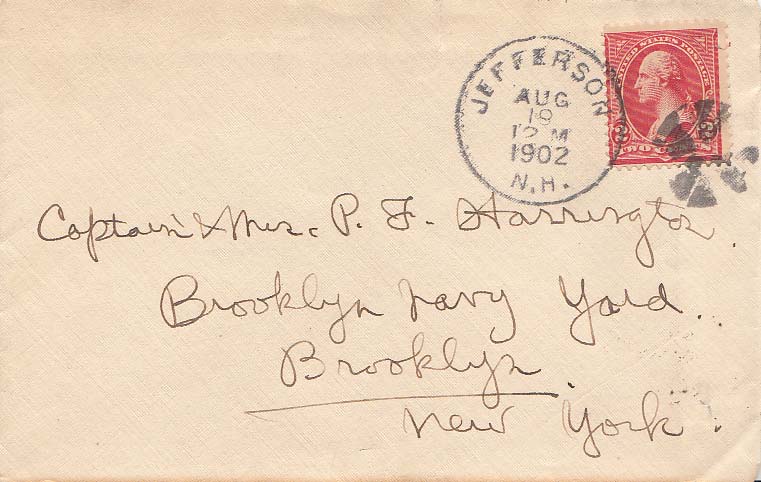 JEFFERSON
AUG
19
12 M
1902
N.H.
UNITED STATES POSTAGE
2 2
TWO CENTS
Captain & Mrs. P. F. Harrington.
Brooklyn Navy Yard.
Brooklyn.
New York.